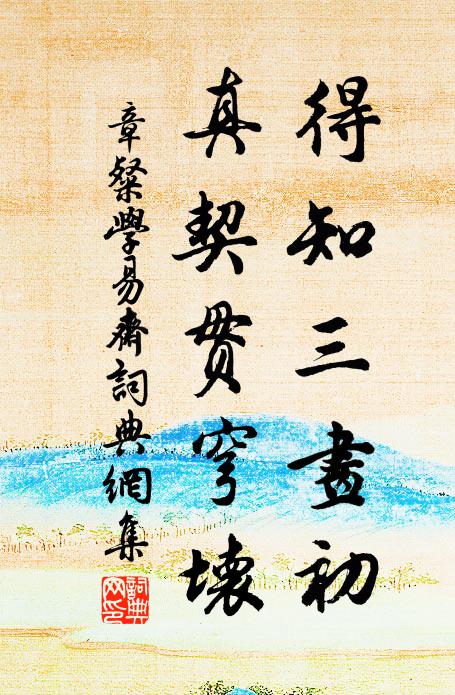 得知三畫初
真契貫穹壤
章粲學易齋詞典網集
詞典网印